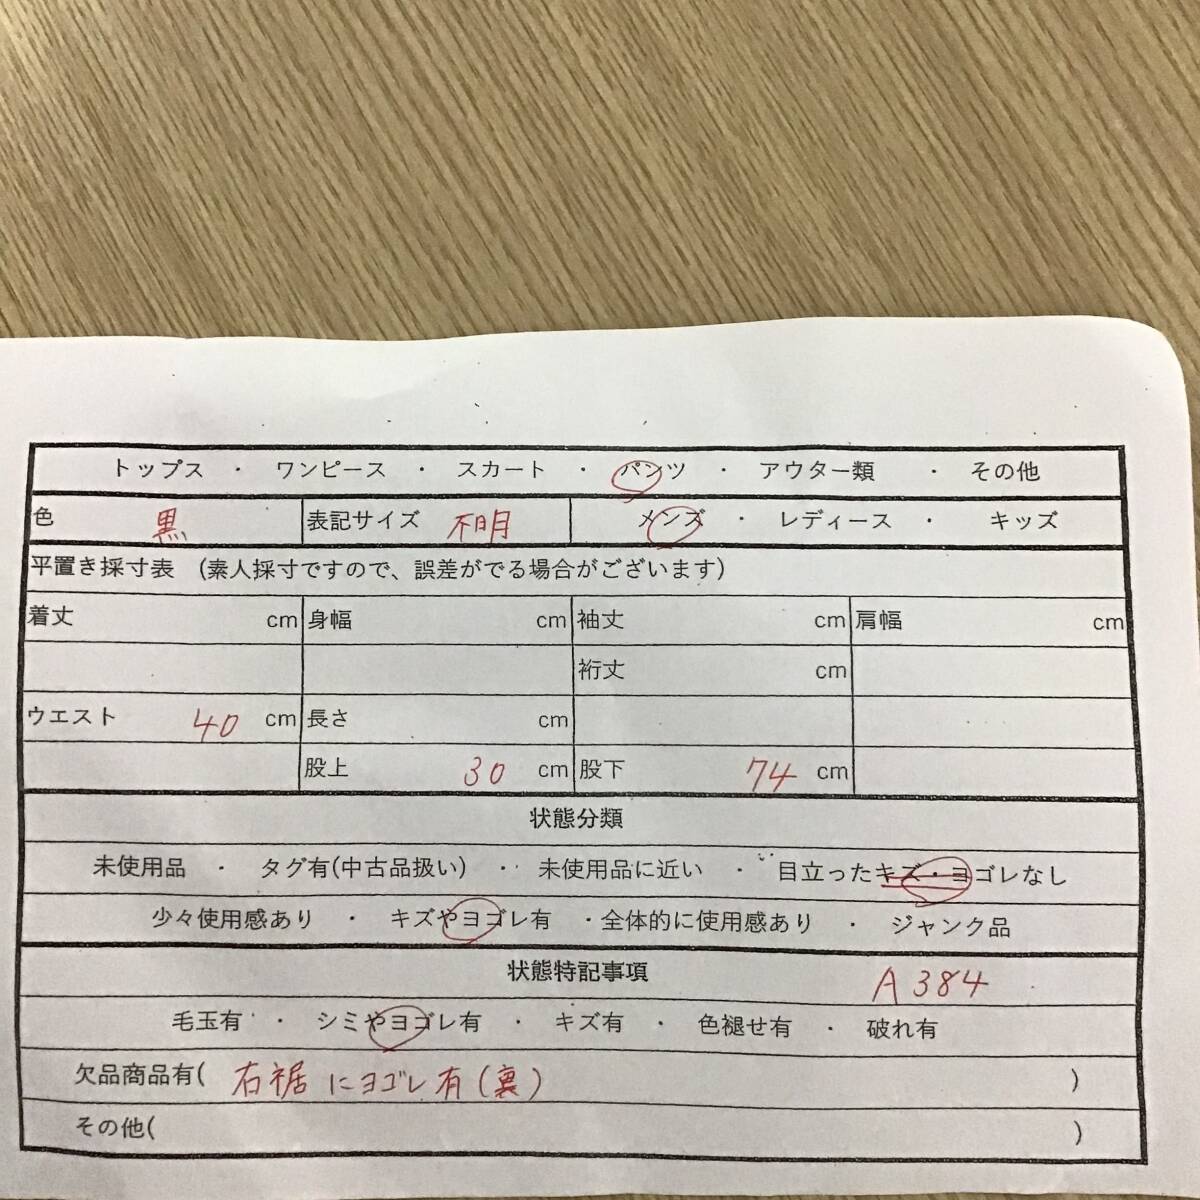 トップス ・ ワンピース ・ スカート ・ パンツ ・ アウター類 ・ その他
色 黒 表記サイズ 不明 メンズ ・ レディース ・ キッズ
平置き採寸表 (素人採寸ですので、誤差がでる場合がございます)
着丈 cm 身幅 cm 袖丈 cm 肩幅 cm
裄丈 cm
ウエスト 40 cm 長さ cm
股上 30 cm 股下 74 cm
状態分類
未使用品 ・ タグ有(中古品扱い) ・ 未使用品に近い ・ 目立ったキズ・ヨゴレなし
少々使用感あり ・ キズやヨゴレ有 ・全体的に使用感あり ・ ジャンク品
状態特記事項 A384
毛玉有 ・ シミやヨゴレ有 ・ キズ有 ・ 色褪せ有 ・ 破れ有
欠品商品有( 右裾にヨゴレ有(裏) )
その他( )